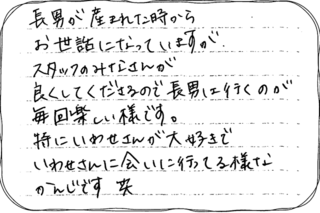 長男が産まれた時から
お世話になっていますが
スタッフのみなさんが
良くしてくださるので長男は行くのが
毎回楽しい様です。
特にいわせさんが大好きで
いわせさんに会いに行ってる様な
かんじです 笑